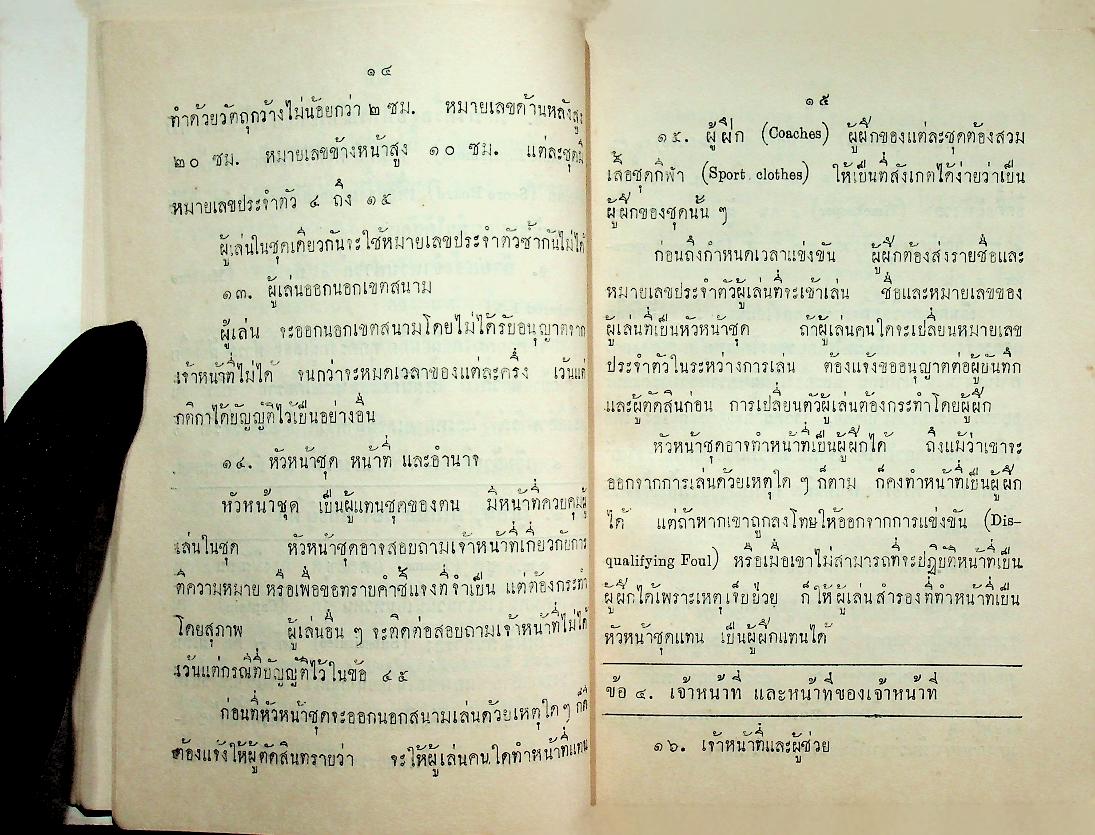 ๑๔
ทำด้วยวัตถุกว้างไม่น้อยกว่า ๒ ซม. หมายเลขด้านหลังสูง
๒๐ ซม. หมายเลขข้างหน้าสูง ๑๐ ซม. แต่ละชุดมี
หมายเลขประจำตัว ๔ ถึง ๑๕
ผู้เล่นในชุดเดียวกันจะใช้หมายเลขประจำตัวซ้ำกันไม่ได้
๑๓. ผู้เล่นออกนอกเขตสนาม
ผู้เล่น จะออกนอกเขตสนามโดยไม่ได้รับอนุญาตจาก
เจ้าหน้าที่ไม่ได้ จนกว่าจะหมดเวลาของแต่ละครึ่ง เว้นแต่
กติกาได้บัญญัติไว้เป็นอย่างอื่น
๑๔. หัวหน้าชุด หน้าที่ และอำนาจ
หัวหน้าชุด เป็นผู้แทนชุดของตน มีหน้าที่ควบคุมผู้
เล่นในชุด หัวหน้าชุดอาจสอบถามเจ้าหน้าที่เกี่ยวกับการ
ตีความหมาย หรือเพื่อขอทราบคำชี้แจงที่จำเป็น แต่ต้องกระทำ
โดยสุภาพ ผู้เล่นอื่น ๆ จะติดต่อสอบถามเจ้าหน้าที่ไม่ได้
เว้นแต่กรณีที่บัญญัติไว้ในข้อ ๔๕
ก่อนที่หัวหน้าชุดจะออกนอกสนามเล่นด้วยเหตุใด ๆ ก็ดี
ต้องแจ้งให้ผู้ตัดสินทราบว่า จะให้ผู้เล่นคนใดทำหน้าที่แทน
๑๕
๑๕. ผู้ฝึก (Coaches) ผู้ฝึกของแต่ละชุดต้องสวม
เสื้อชุดกีฬา (Sport clothes) ให้เป็นที่สังเกตได้ง่ายว่าเป็น
ผู้ฝึกของชุดนั้น ๆ
ก่อนถึงกำหนดเวลาแข่งขัน ผู้ฝึกต้องส่งรายชื่อและ
หมายเลขประจำตัวผู้เล่นที่จะเข้าเล่น ชื่อและหมายเลขของ
ผู้เล่นที่เป็นหัวหน้าชุด ถ้าผู้เล่นคนใดจะเปลี่ยนหมายเลข
ประจำตัวในระหว่างการเล่น ต้องแจ้งขออนุญาตต่อผู้บันทึก
และผู้ตัดสินก่อน การเปลี่ยนตัวผู้เล่นต้องกระทำโดยผู้ฝึก
หัวหน้าชุดอาจทำหน้าที่เป็นผู้ฝึกได้ ถึงแม้ว่าเขาจะ
ออกจากการเล่นด้วยเหตุใด ๆ ก็ตาม ก็คงทำหน้าที่เป็นผู้ฝึก
ได้ แต่ถ้าหากเขาถูกลงโทษให้ออกจากการแข่งขัน (Dis-
qualifying Foul) หรือเมื่อเขาไม่สามารถที่จะปฏิบัติหน้าที่เป็น
ผู้ฝึกได้เพราะเหตุเจ็บป่วย ก็ให้ผู้เล่นสำรองที่ทำหน้าที่เป็น
หัวหน้าชุดแทน เป็นผู้ฝึกแทนได้
ข้อ ๔. เจ้าหน้าที่ และหน้าที่ของเจ้าหน้าที่
๑๖. เจ้าหน้าที่และผู้ช่วย